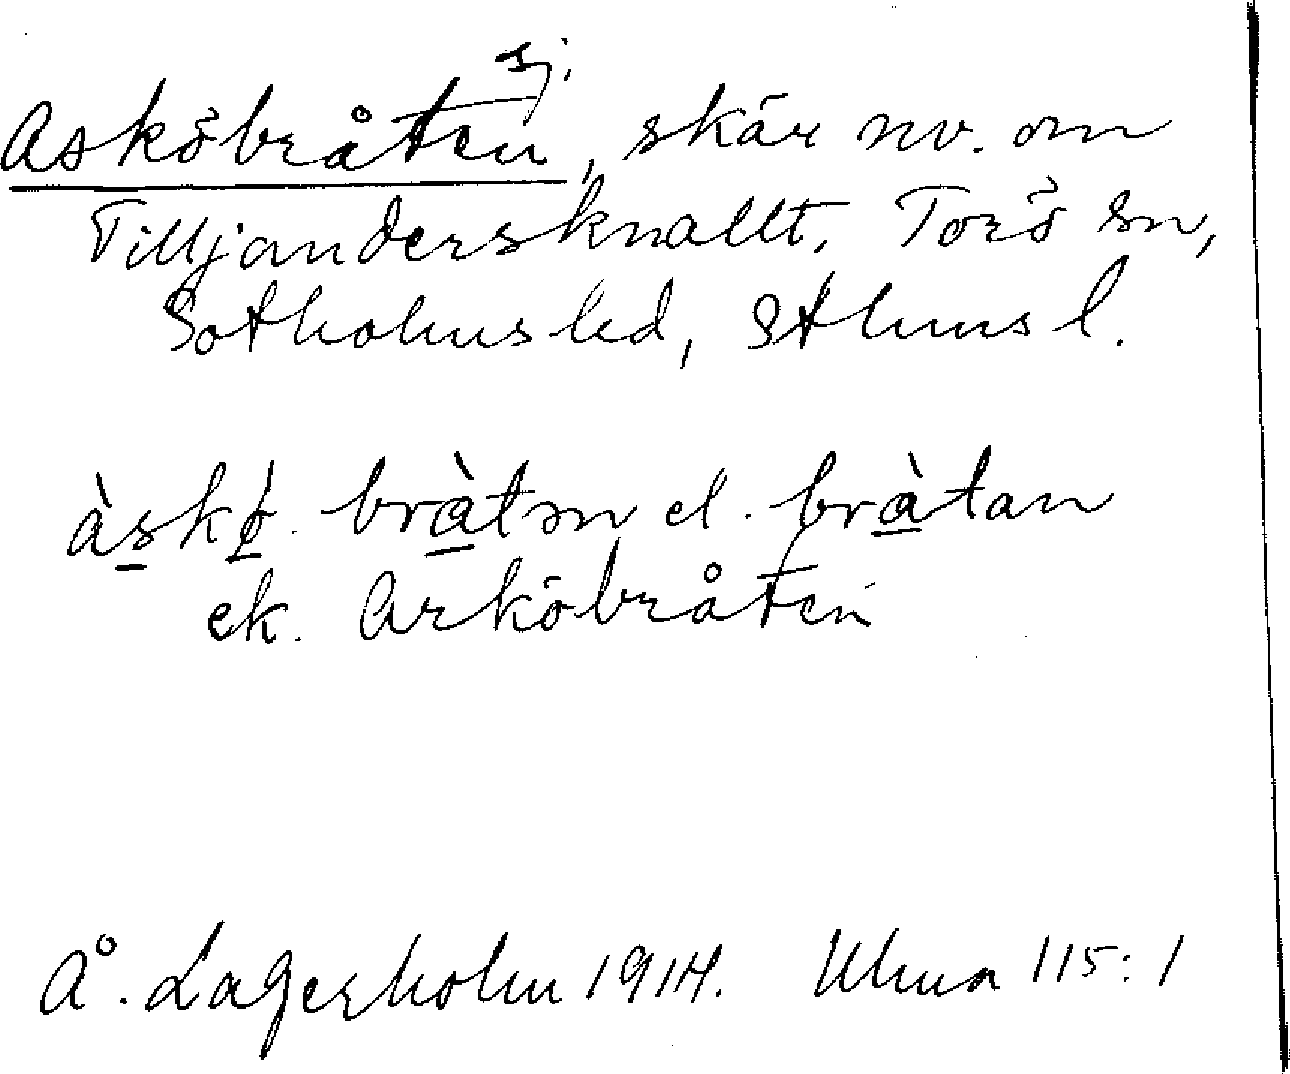 sj.
Asköbråten, skär nv. om
Tilljandersknallt, Torö sn,
Sotholms hd, Sthms l.
àskø. bràtn el. bràtan
ek. Arköbråten
Å. Lagerholm 1914. Uhua 115:1